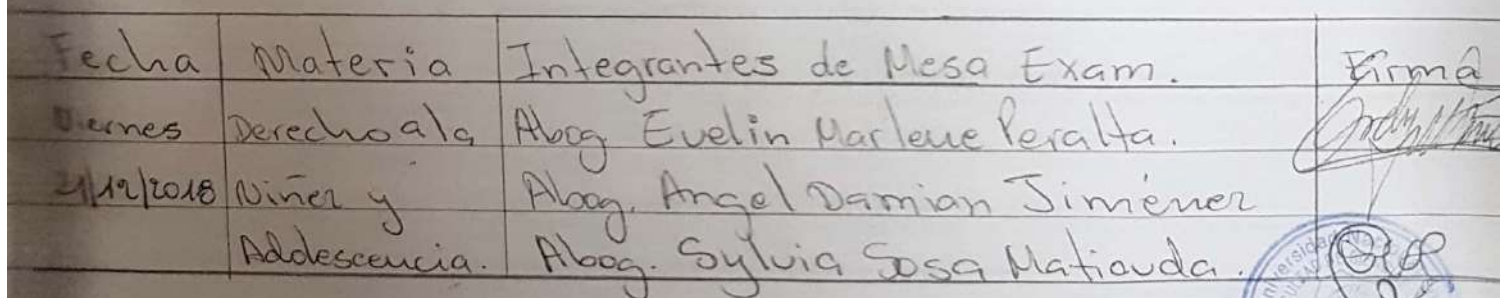 Fecha Materia Integrantes de Mesa Exam. Firma
Viernes Derecho a la Abog Evelin Marlene Peralta.
/12/2018 Niñez y Abog. Angel Damian Jiménez
Adolescencia. Abog. Sylvia Sosa Matiauda.